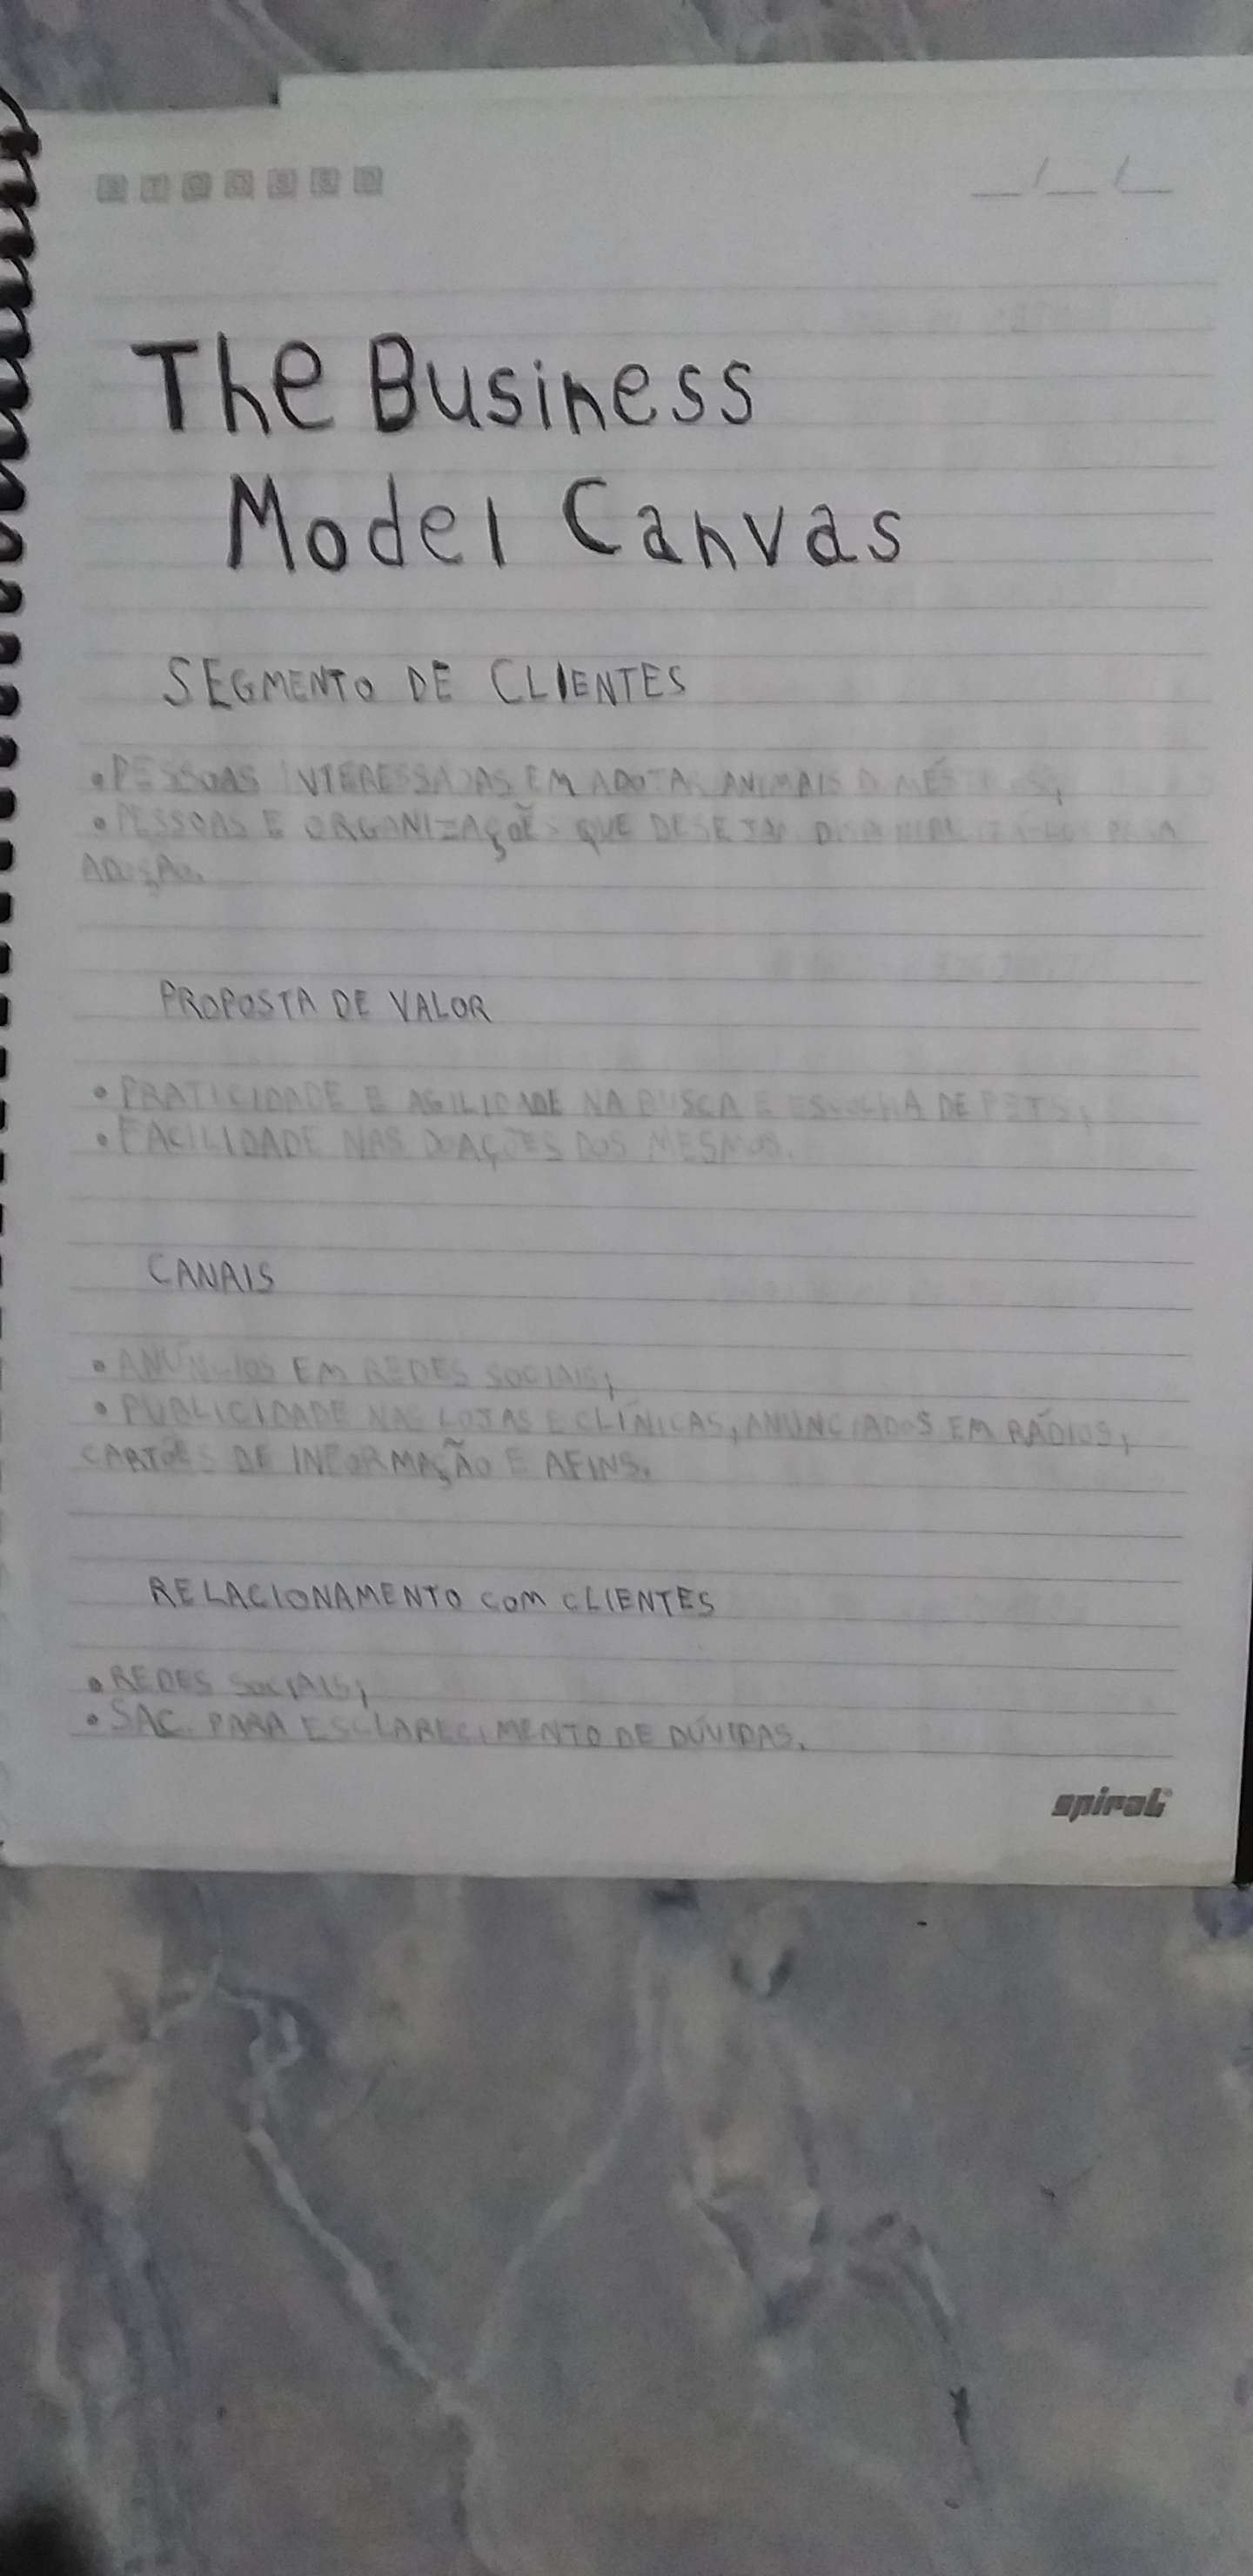 The Business
Model Canvas
SEGMENTO DE CLIENTES
• PESSOAS INTERESSADAS EM ADOTAR ANIMAIS DOMÉSTICOS;
• PESSOAS E ORGANIZAÇÕES QUE DESEJAM
ADOÇÃO.
PROPOSTA DE VALOR
• PRATICIDADE E AGILIDADE NA BUSCA E ESCOLHA DE PETS;
• FACILIDADE NAS DOAÇÕES DOS MESMOS.
CANAIS
• ANÚNCIOS EM REDES SOCIAIS;
• PUBLICIDADE NAS LOJAS E CLÍNICAS, ANUNCIADOS EM RÁDIOS,
CARTÕES DE INFORMAÇÃO E AFINS.
RELACIONAMENTO COM CLIENTES
• REDES SOCIAIS;
• SAC PARA ESCLARECIMENTO DE DÚVIDAS.
spiral